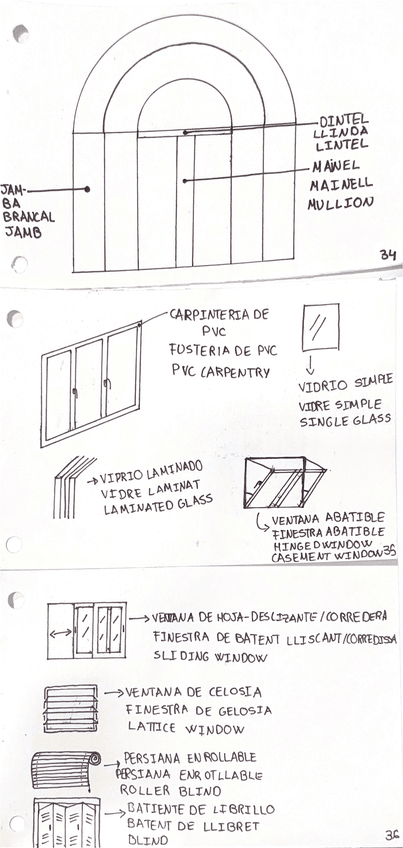 DINTEL
LLINDA
LINTEL
MAINEL
MAINELL
MULLION
JAM-
BA
BRANCAL
JAMB
34
CARPINTERIA DE
PVC
FUSTERIA DE PVC
PVC CARPENTRY
VIDRIO SIMPLE
VIDRE SIMPLE
SINGLE GLASS
VIDRIO LAMINADO
VIDRE LAMINAT
LAMINATED GLASS
VENTANA ABATIBLE
FINESTRA ABATIBLE
HINGED WINDOW
CASEMENT WINDOW
35
VENTANA DE HOJA-DESLIZANTE/CORREDERA
FINESTRA DE BATENT LLISCANT/CORREDISSA
SLIDING WINDOW
VENTANA DE CELOSIA
FINESTRA DE GELOSIA
LATTICE WINDOW
PERSIANA ENROLLABLE
PERSIANA ENROTLLABLE
ROLLER BLIND
BATIENTE DE LIBRILLO
BATENT DE LLIBRET
BLIND
36